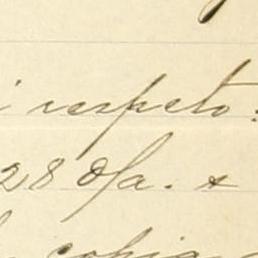 i respeto:
28 d/a. +
copia